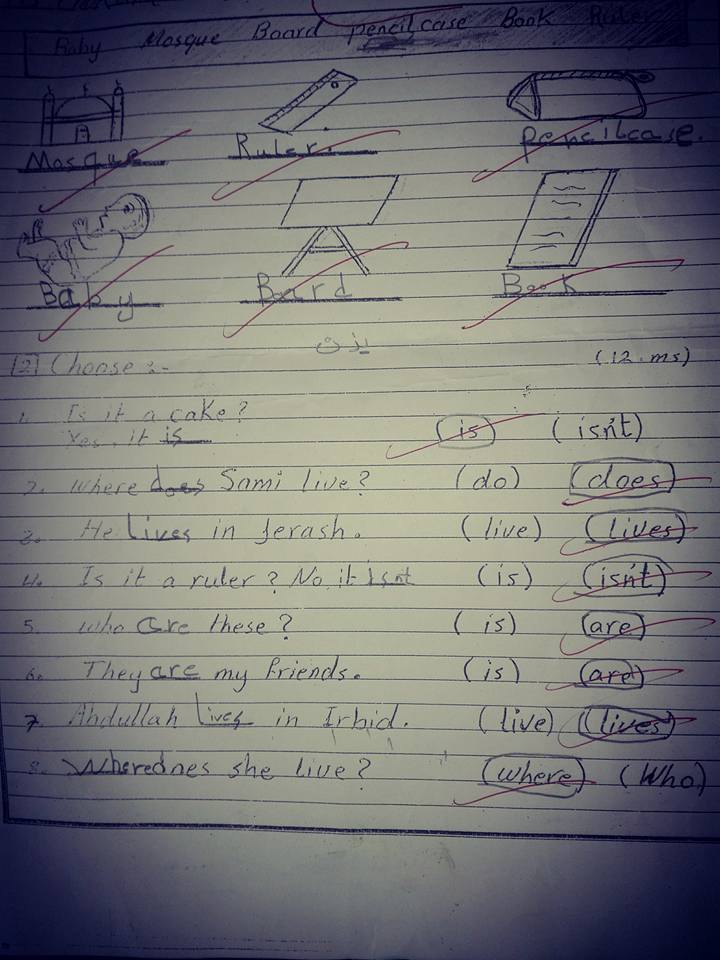 Baby Mosque Board pencilcase Book Ruler
Mosque Ruler. pencilcase.
Baby Board Book
[2] Choose :- (12.ms)
1. Is it a cake?
Yes, it is (is) (isn't)
2. Where does Sami live? (do) (does)
3. He lives in Jerash. (live) (lives)
4. Is it a ruler? No, it isnt (is) (isn't)
5. Who are these? (is) (are)
6. They are my friends. (is) (are)
7. Abdullah lives in Irbid. (live) (lives)
8. Where does she live? (where) (Who)